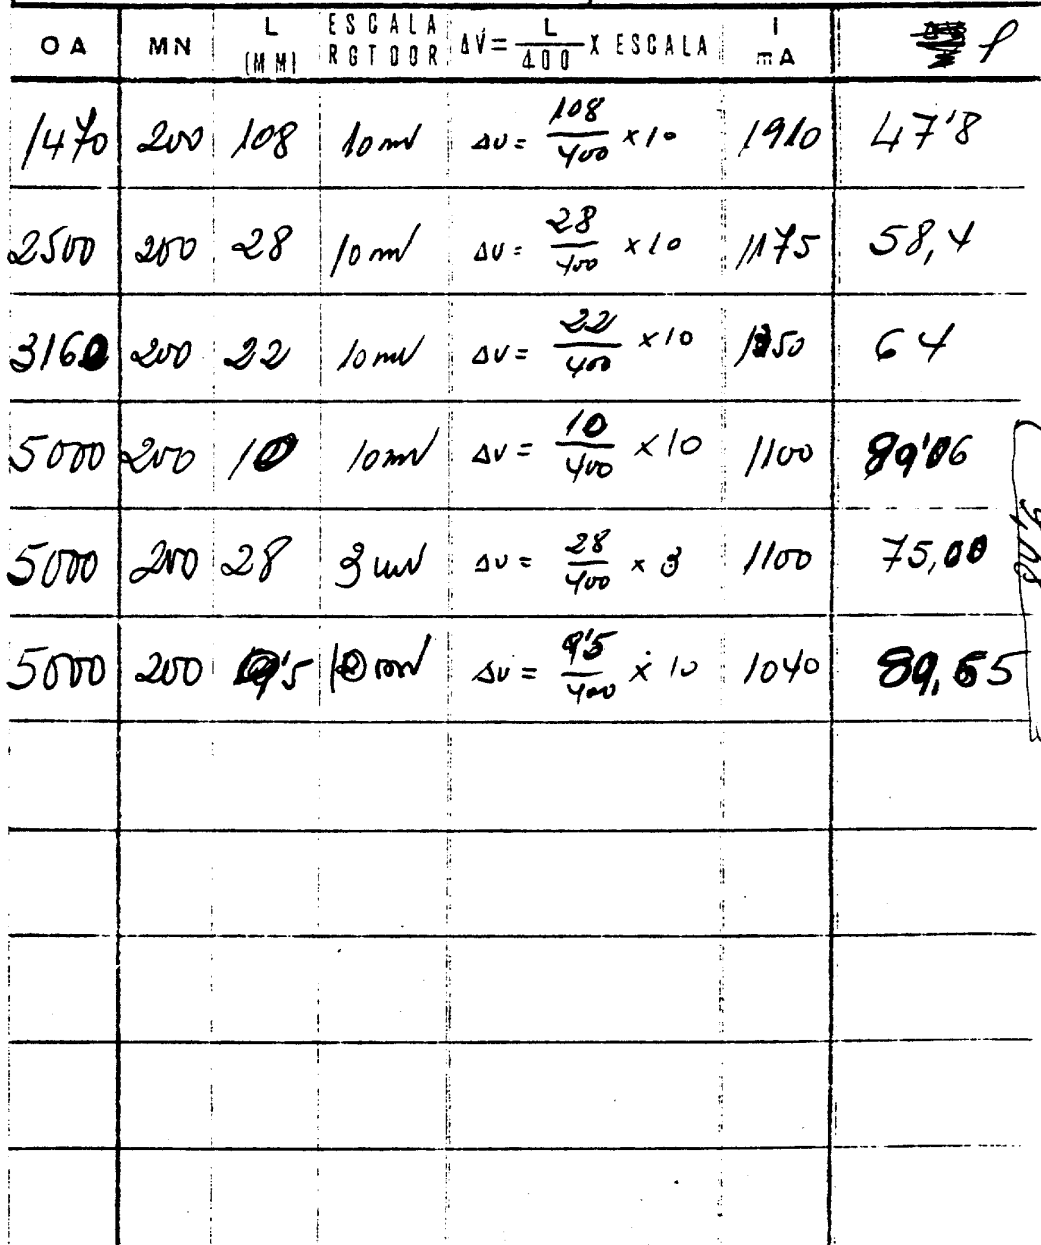 O A MN L (MM) ESCALA RGTDOR ΔV = L/400 X ESCALA I mA ρ
1470 200 108 10 mV ΔV = 108/400 × 10 1910 47'8
2500 200 28 10 mV ΔV = 28/400 × 10 1175 58,4
3160 200 22 10 mV ΔV = 22/400 × 10 50 64
5000 200 10 10 mV ΔV = 10/400 × 10 1100 89'06
5000 200 28 3 mV ΔV = 28/400 × 3 1100 75,00
5000 200 9'5 10 mV ΔV = 9'5/400 × 10 1040 89,65